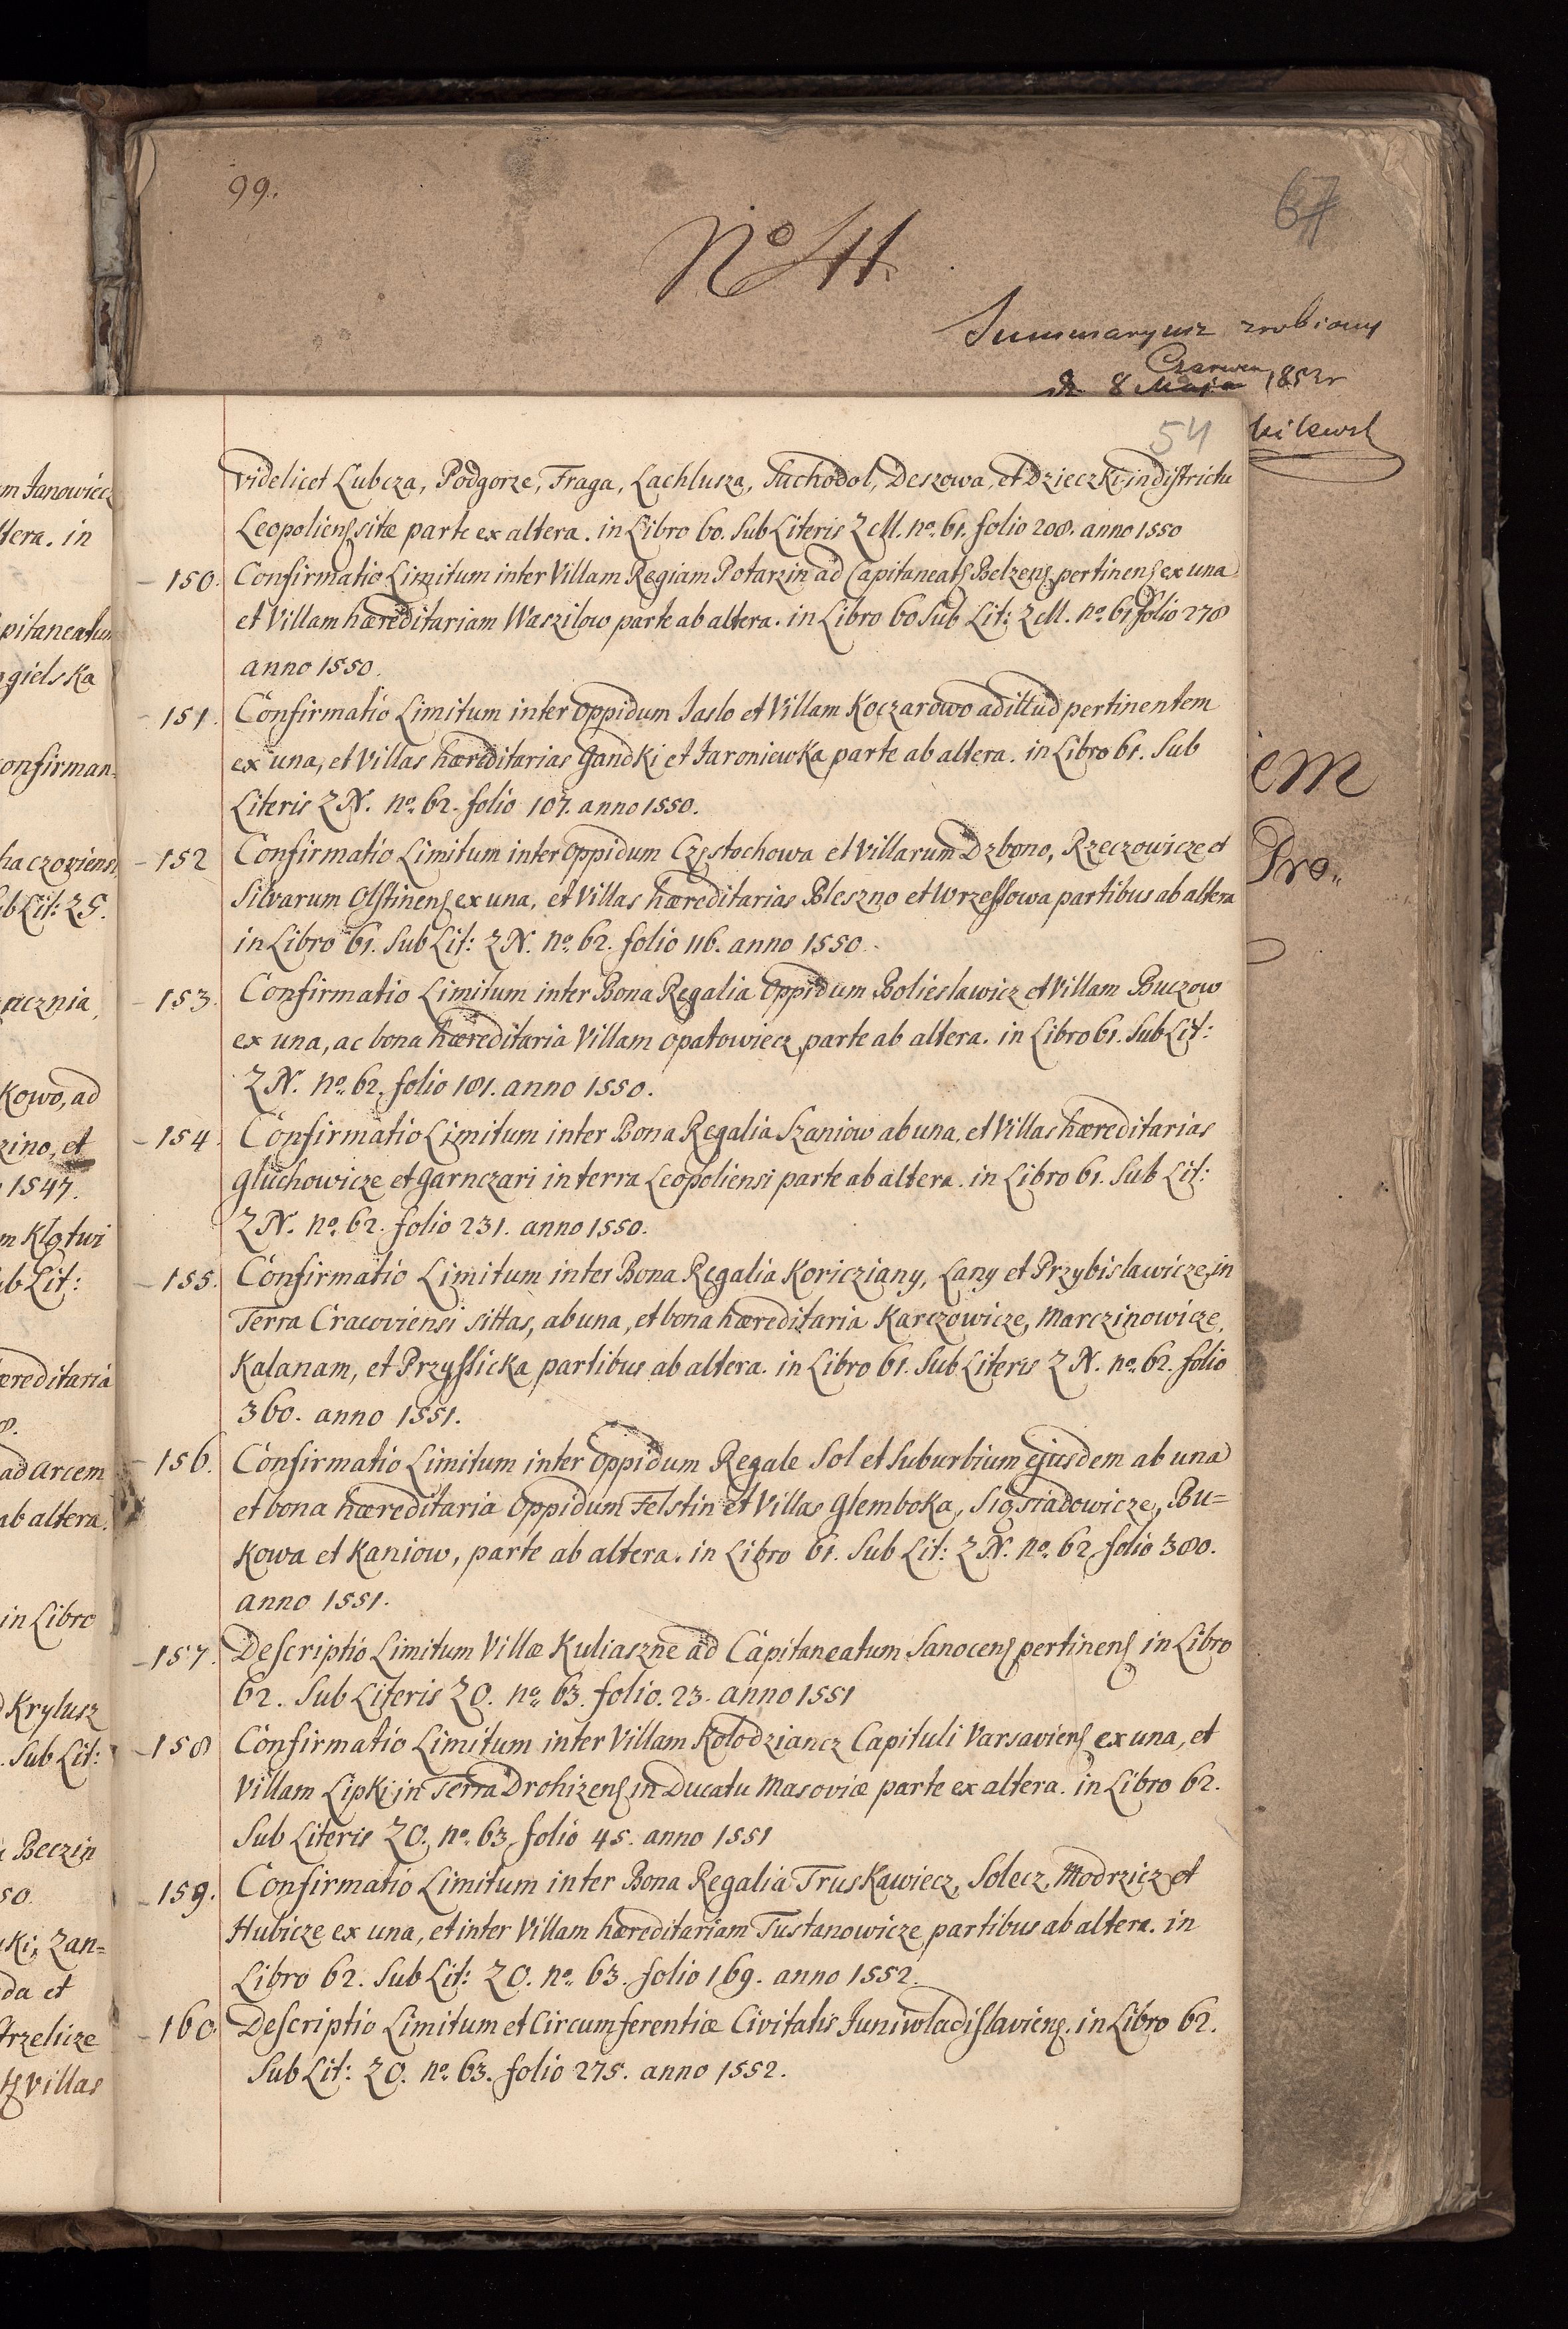 99.
67
No 41.
Summaryusz zrobiony
Czerwca
d. 8 Maja 1853r
kilewsk
54
videlicet Lubcza, Podgorze, Fraga, Lachlusza, Suchodol, Deszowa, et Dzieczki in districtu
Leopoliens sitæ parte ex altera. in Libro 60. Sub Literis Z M. no. 61. folio 208. anno 1550
150. Confirmatio Limitum inter Villam Regiam Potarzin ad Capitaneats Belzens pertinens ex una
et Villam hæreditariam Waszilow parte ab altera. in Libro 60 Sub Lit: Z M. no. 61 folio 278
anno 1550.
151. Confirmatio Limitum inter Oppidum Jaslo et Villam Koczarowo ad illud pertinentem
ex una, et Villas hæreditarias Gandki et Jaroniewka parte ab altera. in Libro 61. Sub
Literis Z N. no. 62. folio 107. anno 1550.
152 Confirmatio Limitum inter Oppidum Częstochowa et Villarum Dzbono, Rzeczowicze et
Silvarum Olstinens ex una, et Villas hæreditarias Bleszno et Wrzessowa partibus ab altera
in Libro 61. Sub Lit: Z N. no. 62. folio 116. anno 1550.
153. Confirmatio Limitum inter Bona Regalia Oppidum Bolieslawicz et Villam Buczow
ex una, ac bona hæreditaria Villam Opatowiecz parte ab altera. in Libro 61. Sub Lit:
Z N. no. 62. folio 181. anno 1550.
154. Confirmatio Limitum inter Bona Regalia Szaniow ab una, et Villas hæreditarias
Gluchowicze et Garnczari in terra Leopoliensi parte ab altera. in Libro 61. Sub Lit:
Z N. no. 62. folio 231. anno 1550.
155. Confirmatio Limitum inter Bona Regalia Koricziany, Lany et Przybislawicze, in
Terra Cracoviensi sittas, ab una, et bona hæreditaria Karczowicze, Marczinowicze,
Kalanam, et Przysslicka partibus ab altera. in Libro 61. Sub Literis Z N. no. 62. folio
360. anno 1551.
156. Confirmatio Limitum inter Oppidum Regale Sol et Suburbium ejusdem ab una
et bona hæreditaria Oppidum Felstin et Villas Glemboka, Sigsiadowicze, Bu=
kowa et Kaniow, parte ab altera. in Libro 61. Sub Lit: Z N. no. 62 folio 380.
anno 1551.
157. Descriptio Limitum Villæ Kuliaszne ad Capitaneatum Sanocens pertinens in Libro
62. Sub Literis ZO. no. 63. folio. 23. anno 1551
158 Confirmatio Limitum inter Villam Kolodziancz Capituli Varsaviens ex una, et
Villam Lipki in Terra Drohizens in Ducatu Masoviæ parte ex altera. in Libro 62.
Sub Literis ZO. no. 63 folio 45. anno 1551
159. Confirmatio Limitum inter Bona Regalia Truskawiecz, Solecz, Modrzicz et
Hubicze ex una, et inter Villam hæreditariam Tustanowicze partibus ab altera. in
Libro 62. Sub Lit: ZO. no. 63. folio 169. anno 1552.
160. Descriptio Limitum et Circumferentiæ Civitatis Juniwladislaviens. in Libro 62.
Sub Lit: ZO. no. 63. folio 275. anno 1552.
em
Pro.,
m Janowiecz
ltera. in
pitaneatum
gielska
onfirman.
haczoviensi
ub Lit: ZS.
acznia,
kowo, ad
zino, et
1547.
m Klotwi
ub Lit:
ereditaria
8.
ad Arcem
ab altera.
in Libro
Krylusz
. Sub Lit:
Beczin
50.
ki, Zan=
da et
trzelicze
villas